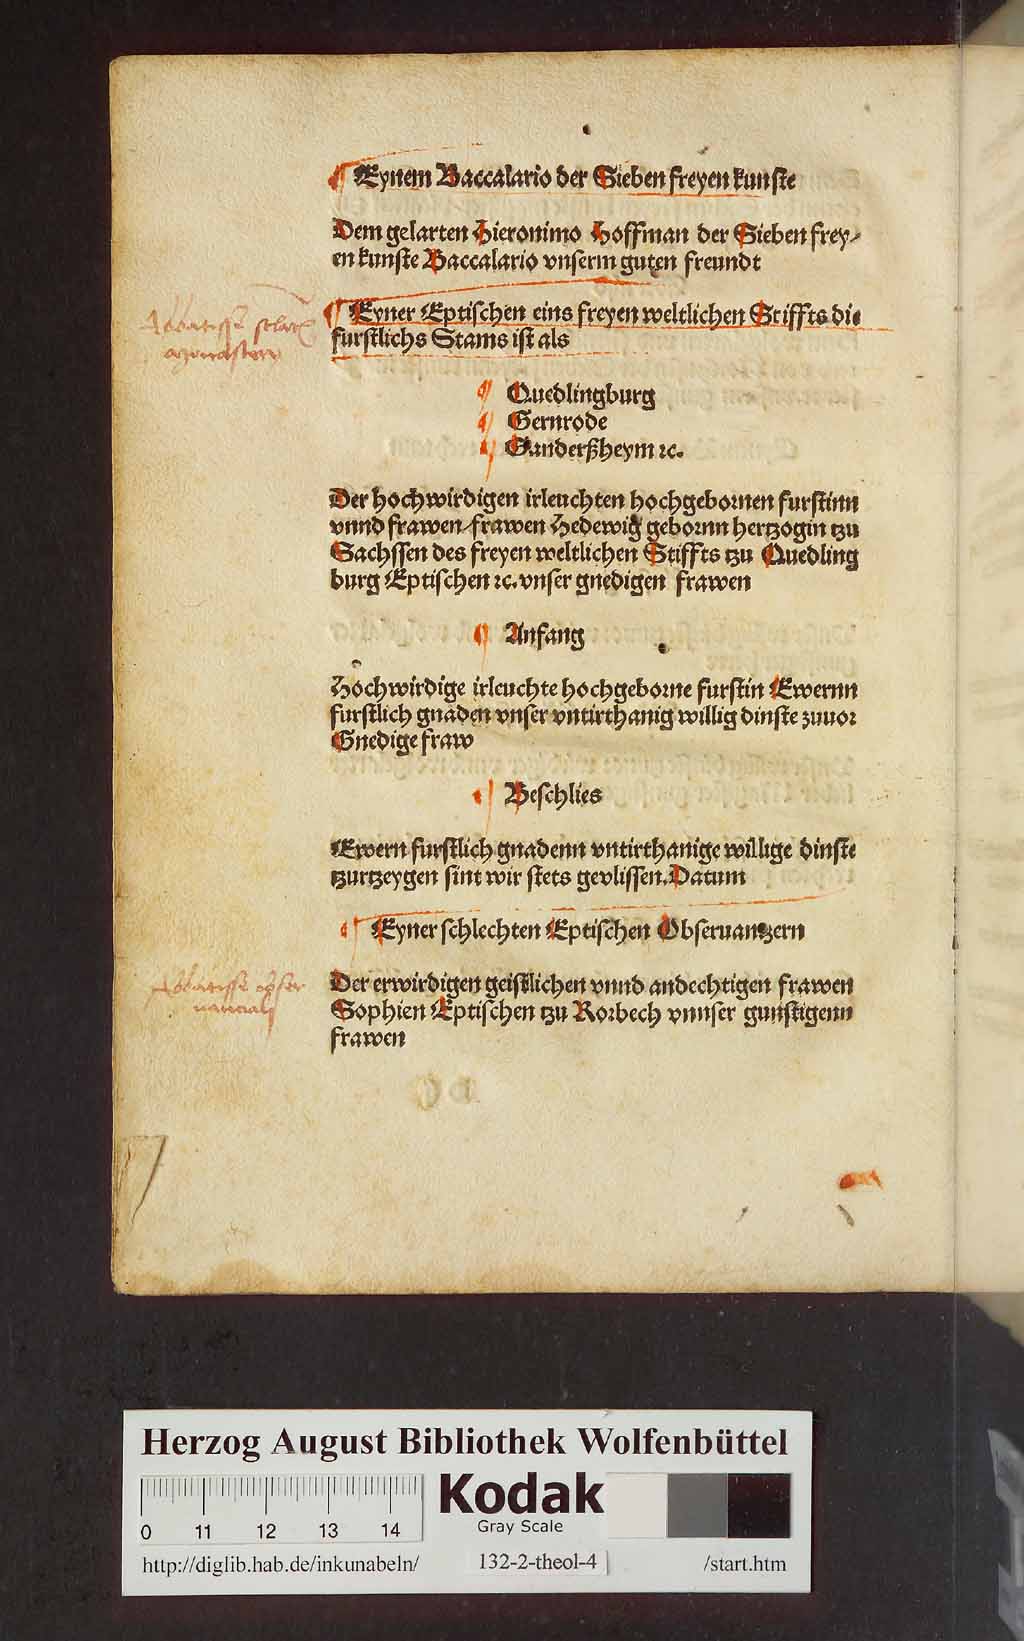 Eynem Baccalario der Sieben freyen kunste
Dem gelarten Hieronimo Hoffman der Sieben frey⸗
en kunste Baccalario vnserm guten freundt
Abbatisse
Eyner Eptischen eins freyen weltlichen Stiffts die
furstlichs Stams ist als
Quedlingburg
Gernrode
Ganderßheym ꝛc.
Der hochwirdigen irleuchten hochgebornen furstinn
vnnd frawen frawen Hedewig gebornn hertzogin tzu
Sachssen des freyen weltlichen Stiffts tzu Quedling
burg Eptischen ꝛc. vnser gnedigen frawen
Anfang
Hochwirdige irleuchte hochgeborne furstin Ewernn
furstlich gnaden vnser vntirthanig willig dinste zuuor
Gnedige fraw
Beschlies
Ewern furstlich gnadenn vntirthanige willige dinste
tzurtzeygen sint wir stets gevlissen. Datum
Eyner schlechten Eptischen Obseruantzern
Abbatisse
Der erwirdigen geistlichen vnnd andechtigen frawen
Sophien Eptischen tzu Rorbech vnnser gunstigenn
frawen
Herzog August Bibliothek Wolfenbüttel
Kodak
Gray Scale
0 11 12 13 14
http://diglib.hab.de/inkunabeln/ 132-2-theol-4 /start.htm